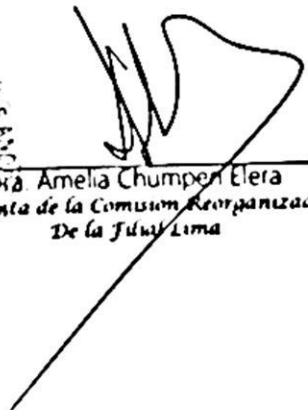 ra. Amelia Chumpen Elera
nta de la Comision Reorganizad
De la Filial Lima